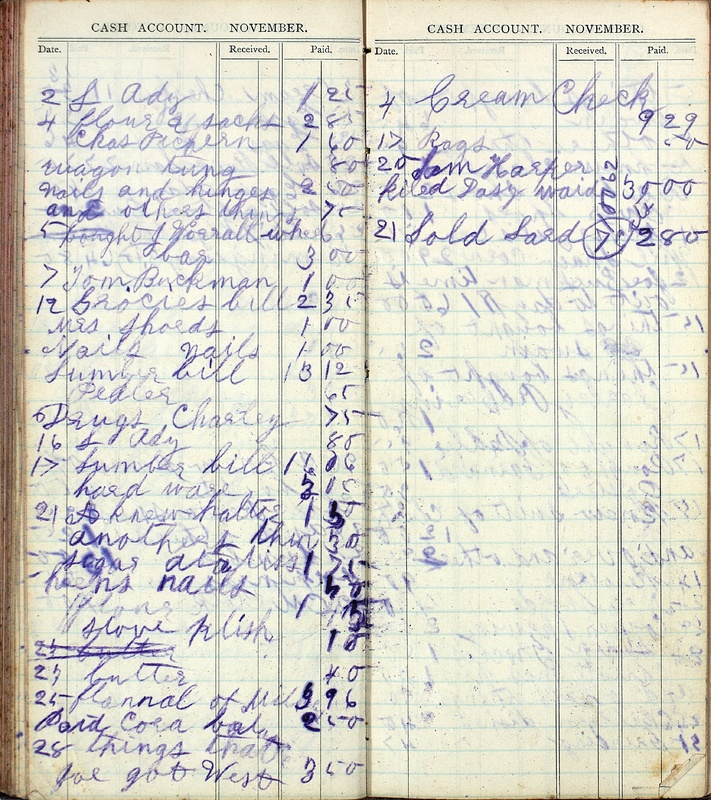 CASH ACCOUNT. NOVEMBER.
Date. Received. Paid.
2 L Ady 1 25
4 flour 2 sacks 2 85
Chas Pickern 1 60
wagon tung 80
nails and hinges 2 50
and others things 75
5 bought of
bar 3 00
7 Tom Buckman 1 00
12 Grocies bill 2 35
Mrs Shoeds 1 00
Nails nails 1 00
Lumber bill 13 12
Pedler 65
6 Drugs Charley 75
16 L Ady 80
17 Lumber bill 11 06
hard ware 2 15
21 knew halter 1
anothers thin 50
sugar 1 75
heens nails
stove plish 10
butter
23 butter 40
25 flannal of 3 96
Paid Cora 2 50
28 things that
Joe got West 3 50
CASH ACCOUNT. NOVEMBER.
Date. Received. Paid.
4 Cream Check
9 29
17 Rags 50
20 Sam Harper
kiled Dasy 30 00
21 Sold Lard 7 2 80